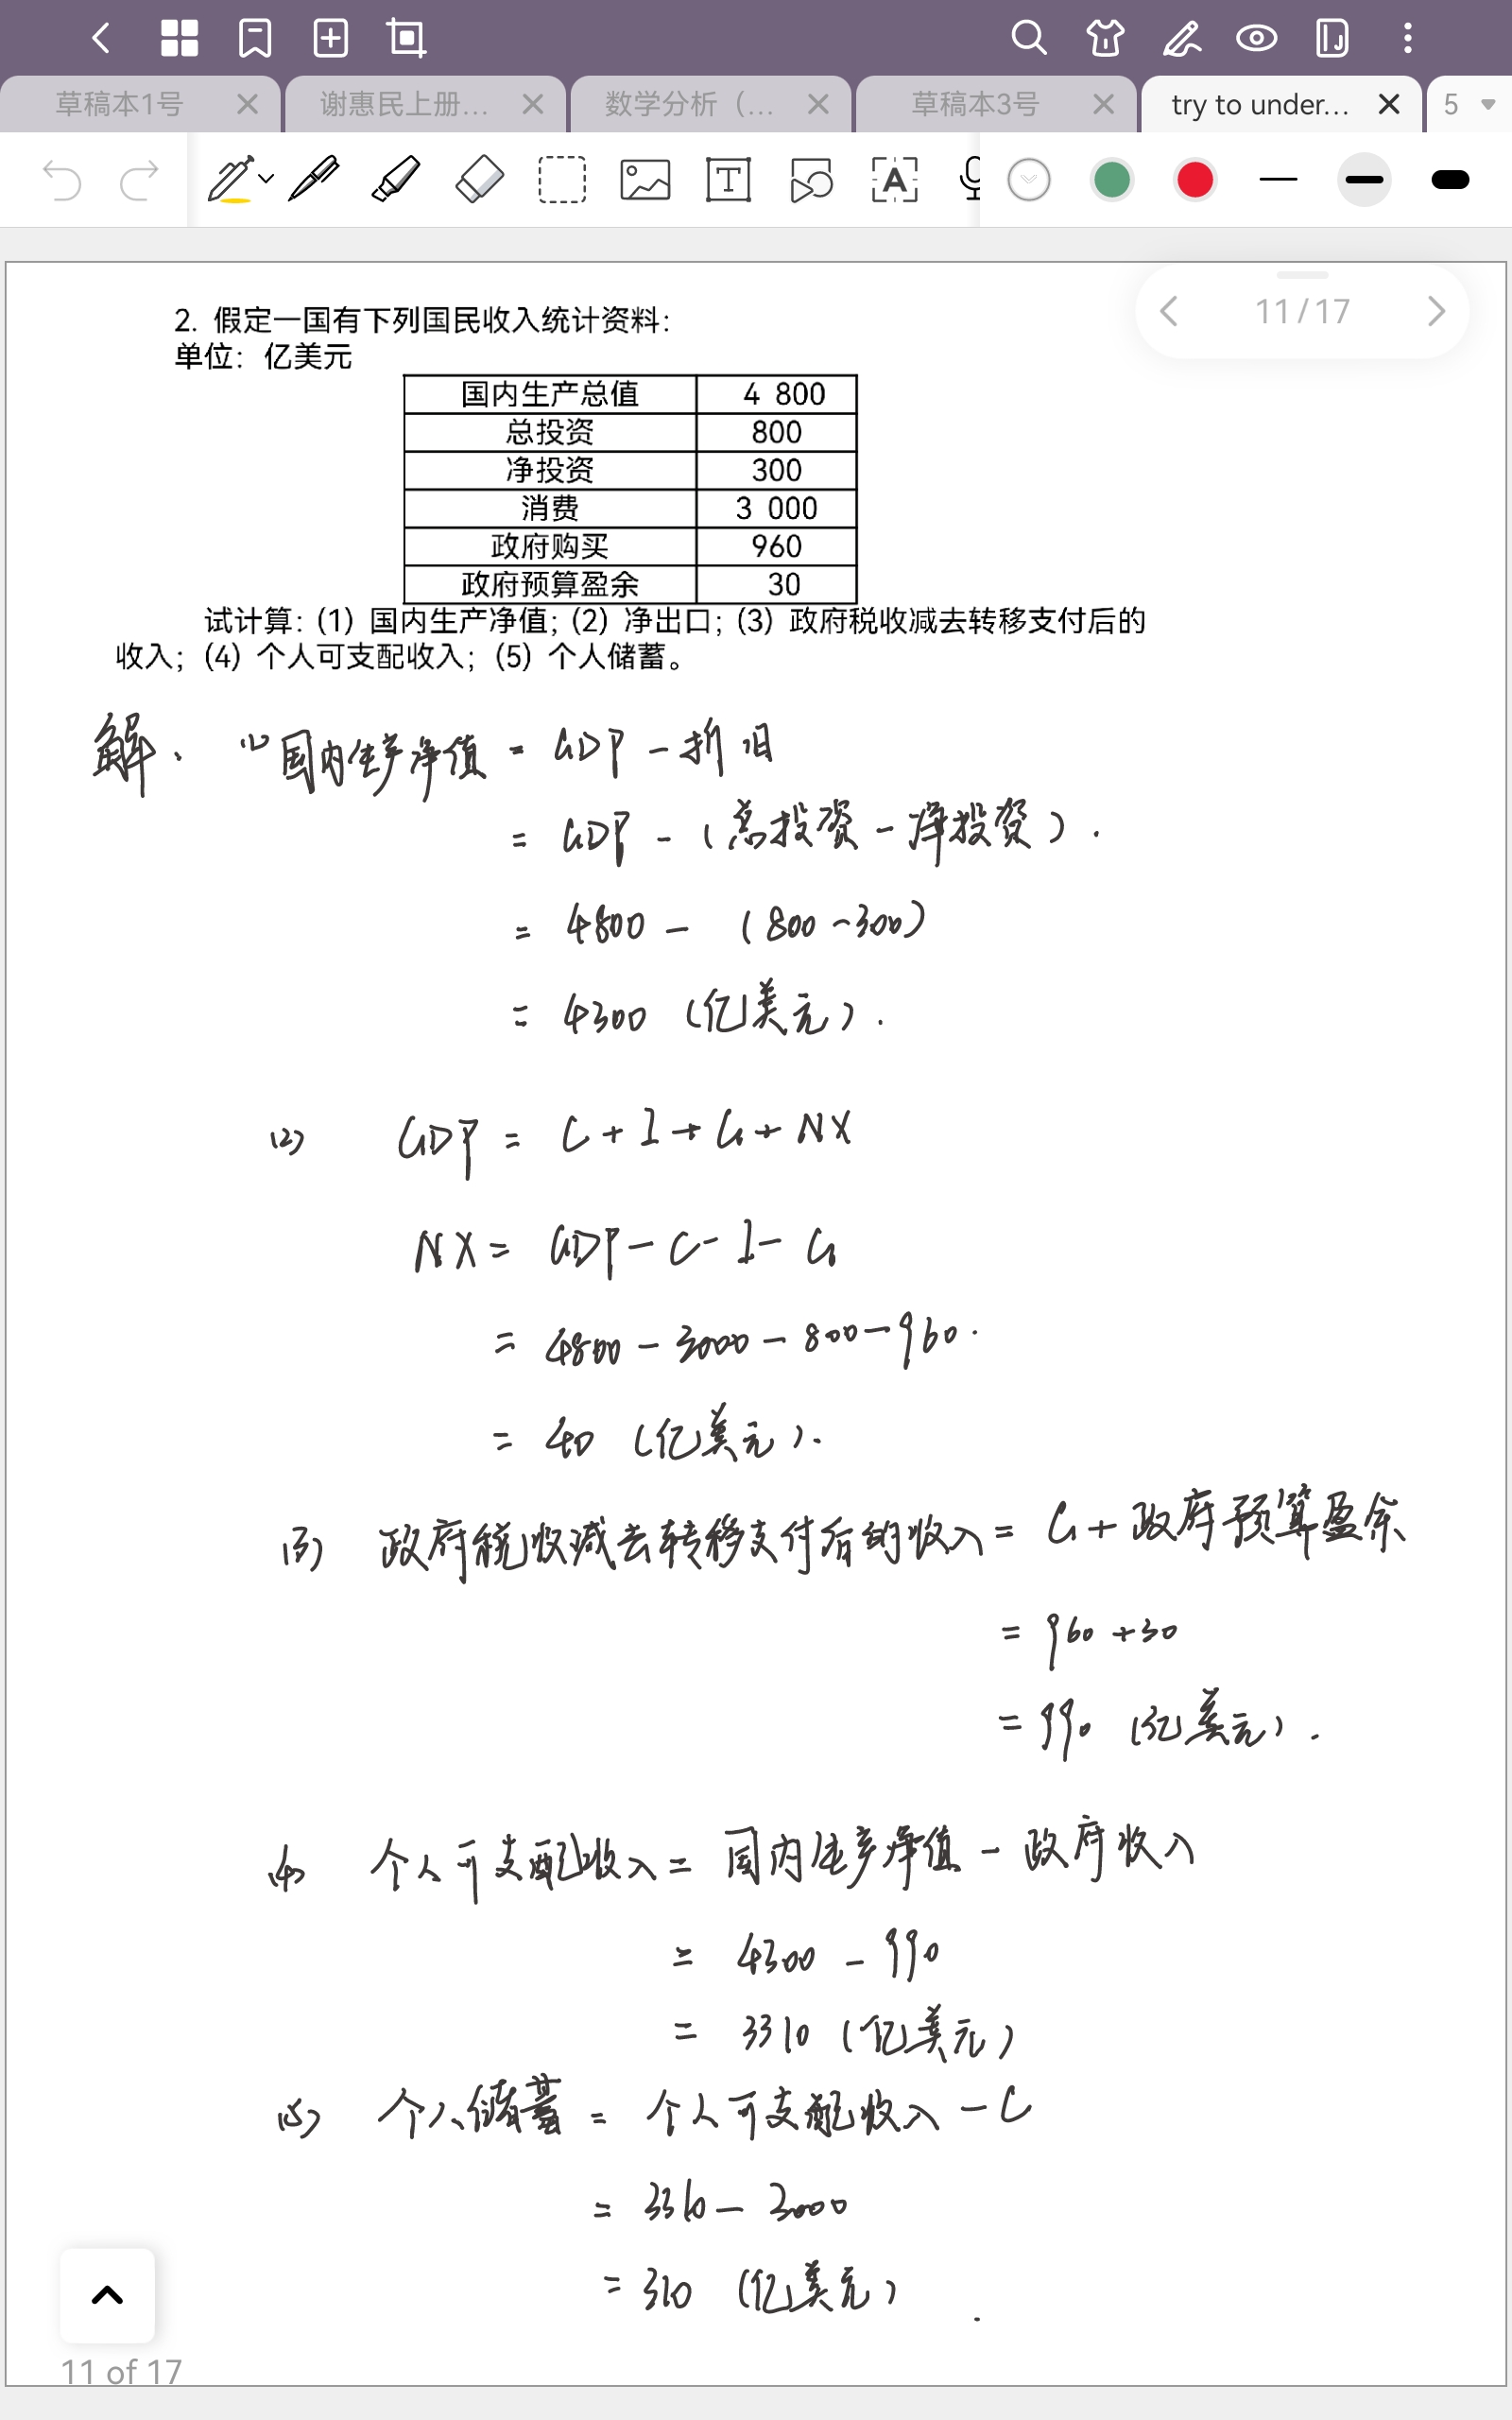 草稿本1号
谢惠民上册...
数学分析（...
草稿本3号
try to under...
5
11/17
2. 假定一国有下列国民收入统计资料：
单位：亿美元
国内生产总值 4 800
总投资 800
净投资 300
消费 3 000
政府购买 960
政府预算盈余 30
试计算：(1) 国内生产净值；(2) 净出口；(3) 政府税收减去转移支付后的
收入；(4) 个人可支配收入；(5) 个人储蓄。
解. (1) 国内生产净值 = GDP - 折旧
= GDP - (总投资 - 净投资).
= 4800 - (800-300)
= 4300 (亿美元).
(2) GDP = C + I + G + NX
NX = GDP - C - I - G
= 4800 - 3000 - 800 - 960.
= 40 (亿美元).
(3) 政府税收减去转移支付后的收入 = G + 政府预算盈余
= 960 + 30
= 990 (亿美元).
(4) 个人可支配收入 = 国内生产净值 - 政府收入
= 4300 - 990
= 3310 (亿美元)
(5) 个人储蓄 = 个人可支配收入 - C
= 3310 - 3000
= 310 (亿美元).
11 of 17